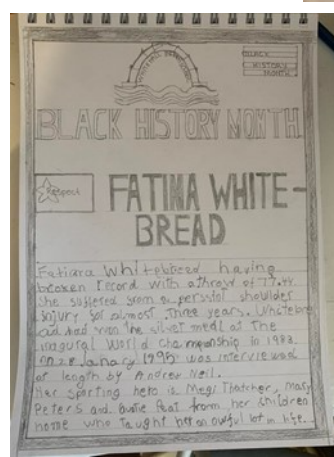 BLACK
HISTORY
MONTH
BLACK HISTORY MONTH
Respect
FATINA WHITE-
BREAD
Fatiara Whitebreed having
broken record with a throw of 77.44
She suffered from a persistnl shoulder
injury for almost three years. Whitebre
ad had won the silver medl at The
inagural World championship in 1983.
on 28 Janary 1995 was interviewed
at length by Andrew Neil.
Her sporting hero is Megi Thatcher, Mary
Peters and Peat fromm her children
home who taught her an owful lot in life.